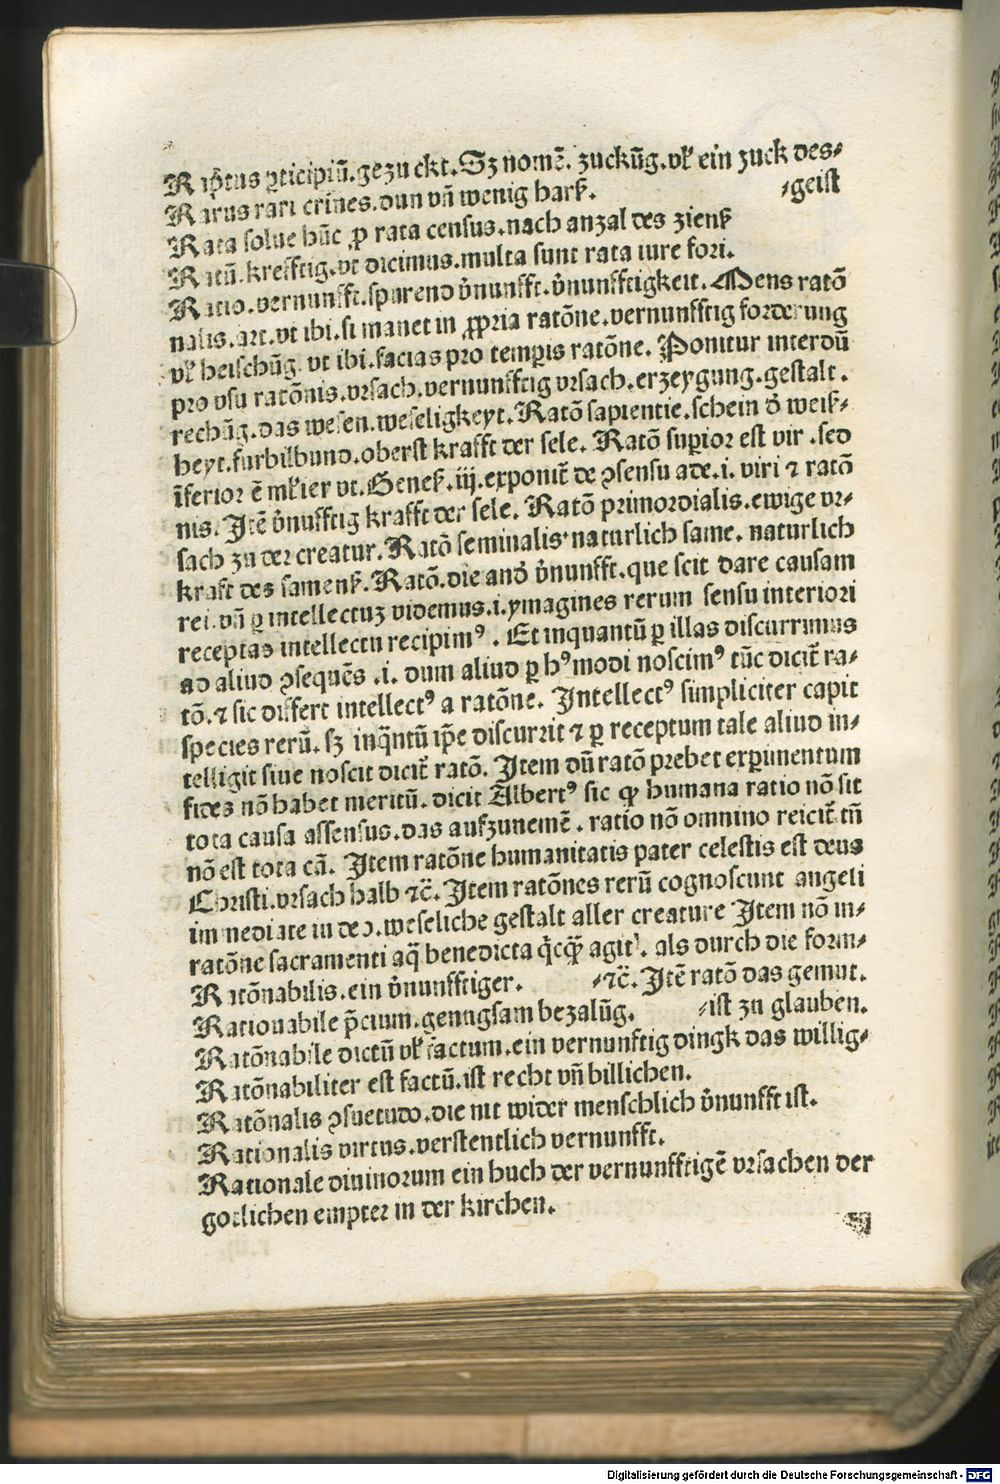 Rap̄tus ꝑticipiū.gezuckt.Sz nomē. zuckūg.vl̓ ein zuck des⸗
Rarus rari crines.dun vn̄ wenig harſz. ⸗geiſt
Rata ſolue hūc ꝓ rata cenſus.nach anzal des zienſz
Ratū.krefftig.vt dicimus.multa ſunt rata iure fori.
Ratio.vernunfft.ſpurend v̓nunfft.v̓nunfftigkeit.Mens ratō
nalis.art.vt ibi.ſi manet in ꝓpria ratōne.vernunfftig forderung
vl̓ heiſchūg. vt ibi.facias pro temꝑis ratōne. Ponitur interdū
pro vſu ratōnis.vrſach.vernunfftig vrſach.erzeygung.geſtalt.
rechūg.das weſen.weſeligkeyt.Ratō ſapientie.ſchein d̓ weiſz⸗
heyt.furbilbund.oberſt krafft der ſele. Ratō ſuꝑior eſt vir .ſed
īferior ē ml̓ier vt.Geneſz.iij.exponit̄ de ꝯſenſu ade.i. viri ⁊ ratō
nis. Jtē v̓nufftig krafft der ſele. Ratō primordialis.ewige vr⸗
ſach zu der creatur.Ratō ſeminalis·naturlich ſame. naturlich
kraft des ſamenſz.Ratō.die and̓ v̓nunfft.que ſcit dare cauſam
rei.vn̄ ꝑ intellectuz videmus.i.ymagines rerum ſenſu interiori
receptas intellectu recipimꝰ . Et inquantū ꝑ illas diſcurrimus
ad aliud ꝯſequēs .i. dum aliud ꝑ hꝰmodi noſcimꝰ tūc dicit̄ ra⸗
tō.⁊ ſic differt intellectꝰ a ratōne. Jntellectꝰ ſimpliciter capit
ſpecies rerū. ſz inq̄ntū ip̄e diſcurrit ⁊ ꝑ receptum tale aliud in⸗
telligit ſiue noſcit dicit̄ ratō. Jtem dū ratō prebet exꝑimentum
fides nō habet meritū. dicit Albertꝰ ſic ꝙ humana ratio nō ſit
tota cauſa aſſenſus.das aufzunemē . ratio nō omnino reicit̄ tn̄
nō eſt tota cā. Jtem ratōne humanitatis pater celeſtis eſt deus
Chriſti.vrſach halb ⁊c̄. Jtem ratōnes rerū cognoſcunt angeli
immediate in deo.weſeliche geſtalt aller creature Jtem nō in⸗
ratōne ſacramenti aq̄ benedicta q̇cꝙ̄ agit². als durch die form⸗
Ratōnabilis.ein v̓nunfftiger. ⸗⁊c̄. Jtē ratō das gemut.
Rationabile p̄cium.genugſam bezalūg. ⸗iſt zu glauben.
Ratōnabile dictū vl̓ factum.ein vernunftig dingk das willig⸗
Ratōnabiliter eſt factū.iſt recht vn̄ billichen.
Ratōnalis ꝯſuetudo.die nit wider menſchlich v̓nunfft iſt.
Rationalis virtus.verſtentlich vernunfft.
Rationale diuinorum ein buch der vernunfftigē vrſachen der
gotlichen empter in der kirchen.
Digitalisierung gefördert durch die Deutsche Forschungsgemeinschaft - DFG